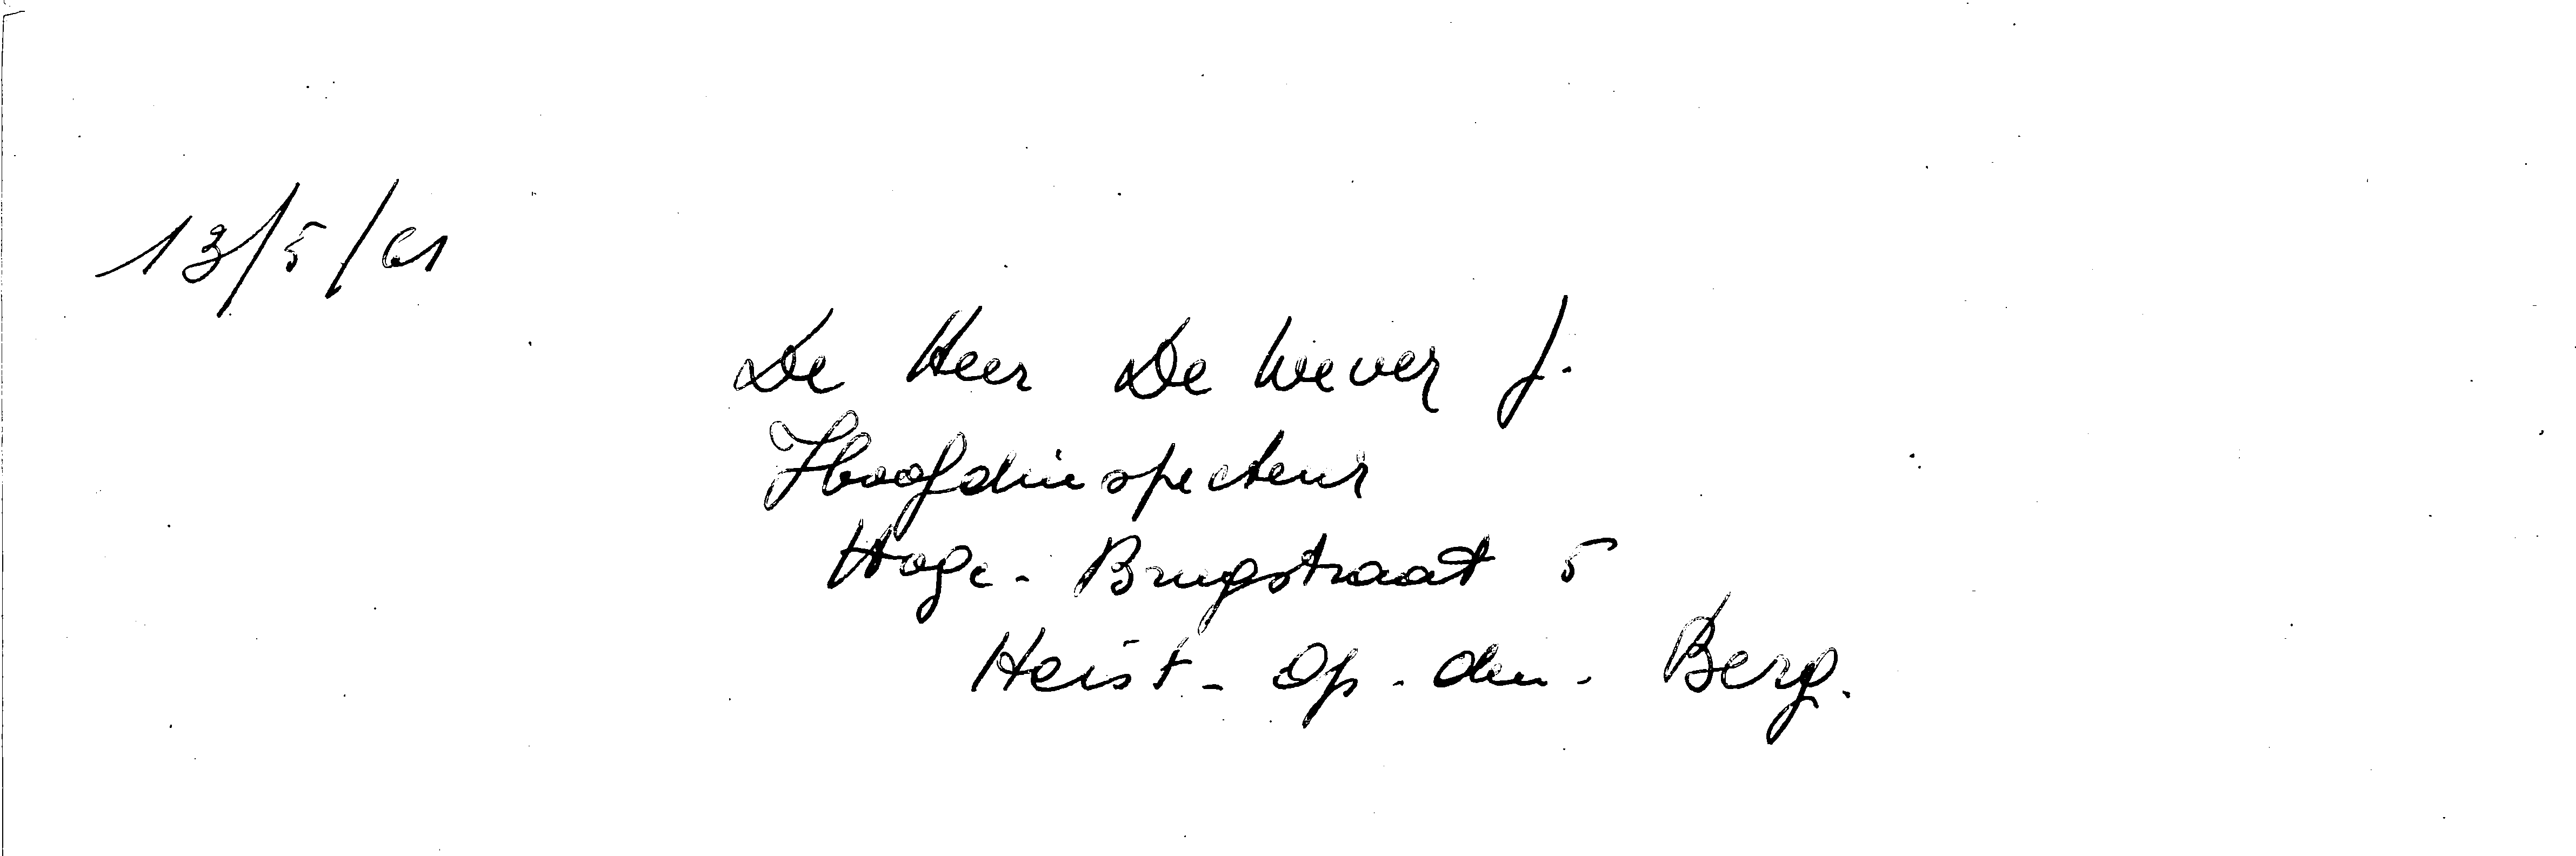 13/5/61
De Heer De Wever J.
Hoofdinspecteur
Hoge-Brugstraat 5
Heist-op-den-Berg.